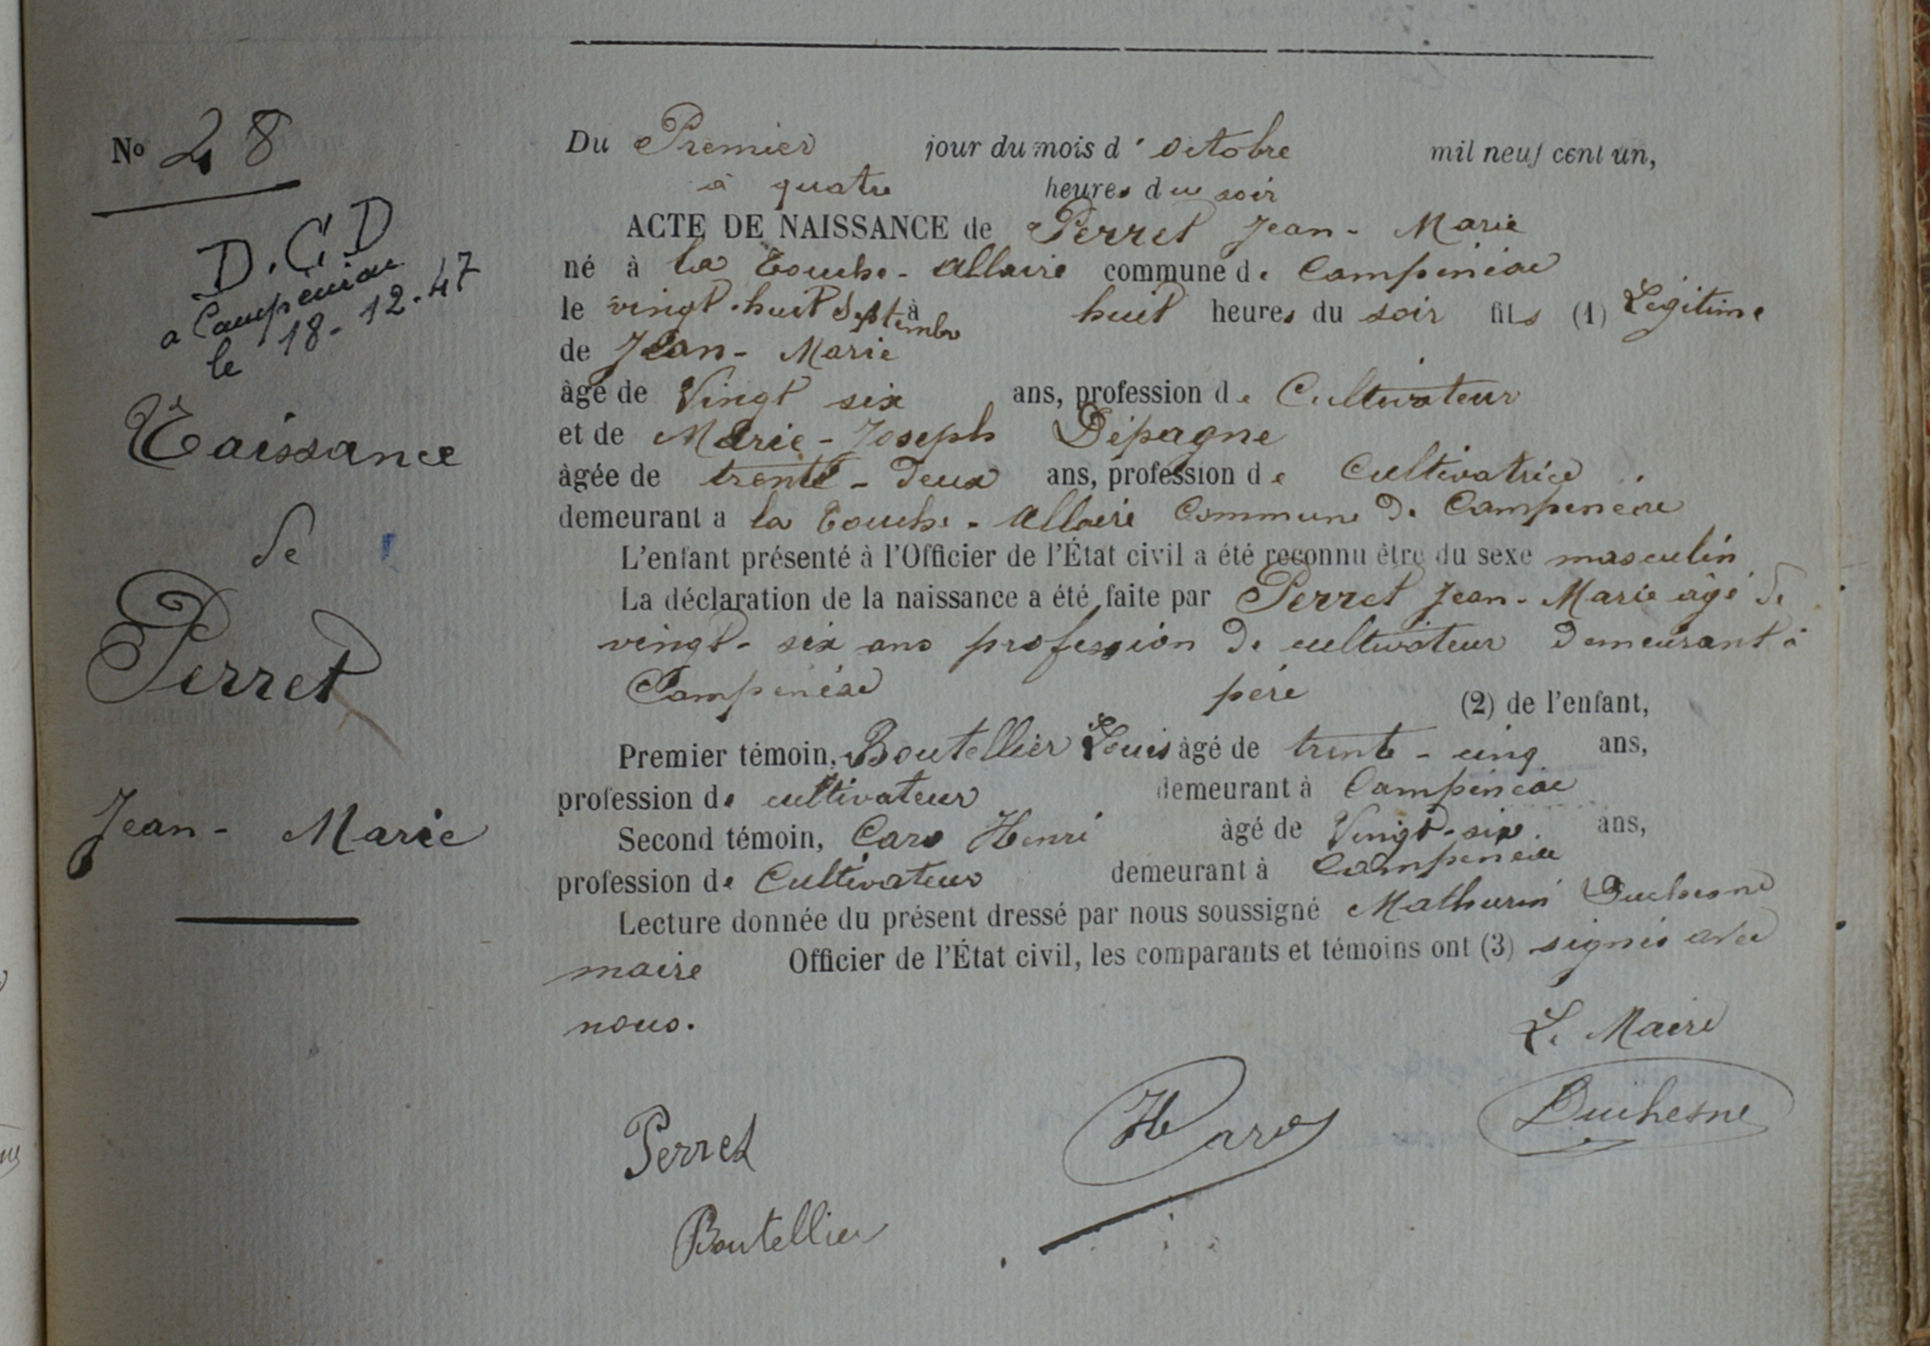 No 28
D.C.D
a Campénéac
le 18-12-47
Naissance
de
Perret
Jean-Marie
Du Premier jour du mois d'octobre mil neuf cent un,
à quatre heures du soir
ACTE DE NAISSANCE de Perret Jean-Marie
né à la Touche-Allaire commune de Campénéac
le vingt-huit Septembre à huit heures du soir fils (1) Légitime
de Jean-Marie
âgé de Vingt six ans, profession de Cultivateur
et de Marie-Joseph Dépagne
âgée de trente-deux ans, profession de Cultivatrice
demeurant a la Touche-Allaire Commune de Campénéac
L'enfant présenté à l'Officier de l'État civil a été reconnu être du sexe masculin
La déclaration de la naissance a été faite par Perret Jean-Marie âgé de
vingt-six ans profession de cultivateur demeurant à
Campénéac père (2) de l'enfant,
Premier témoin, Boutellier Louis âgé de trente-cinq ans,
profession de cultivateur demeurant à Campénéac
Second témoin, Caro Henri âgé de Vingt-six ans,
profession de Cultivateur demeurant à Campénéac
Lecture donnée du présent dressé par nous soussigné Mathurin Duchesne
maire Officier de l'État civil, les comparants et témoins ont (3) signés avec
nous.
Le Maire
Perret
H Caro
Duchesne
Boutellier